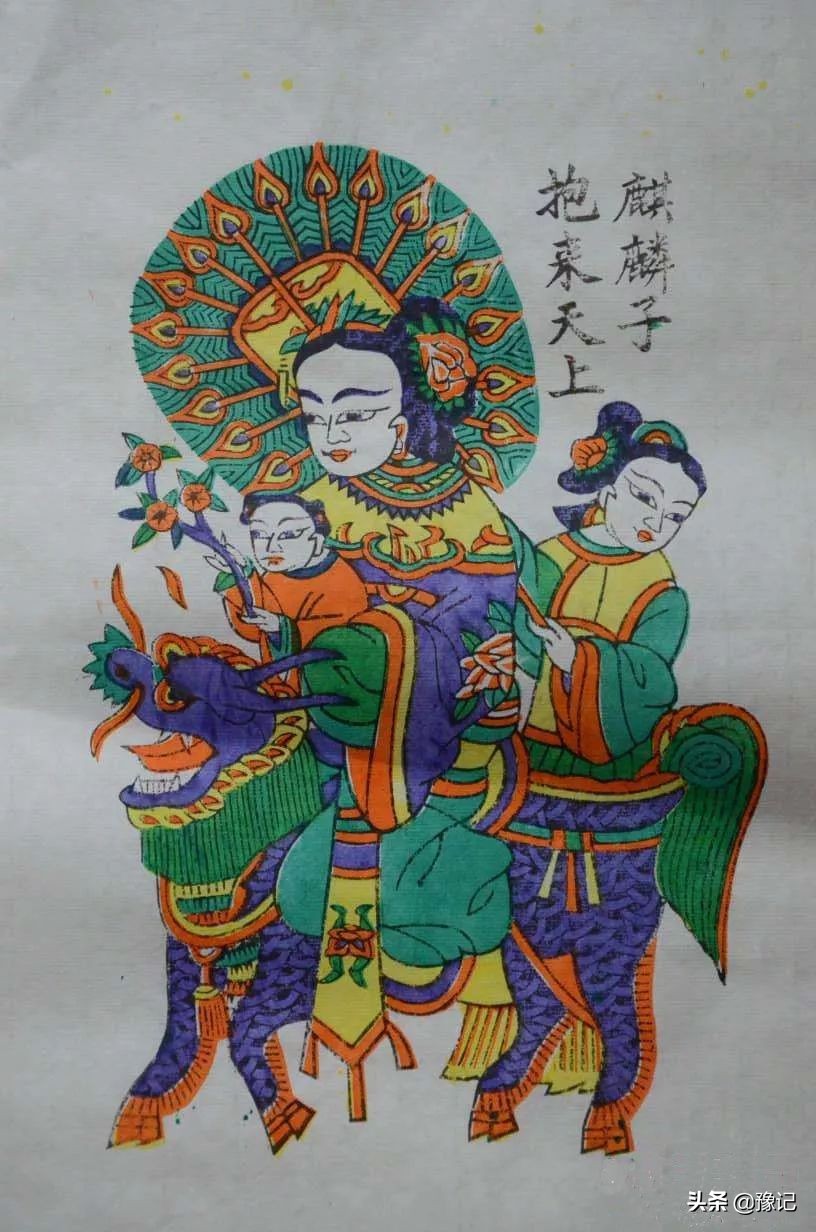 麒麟子
抱来天上
头条 @豫记